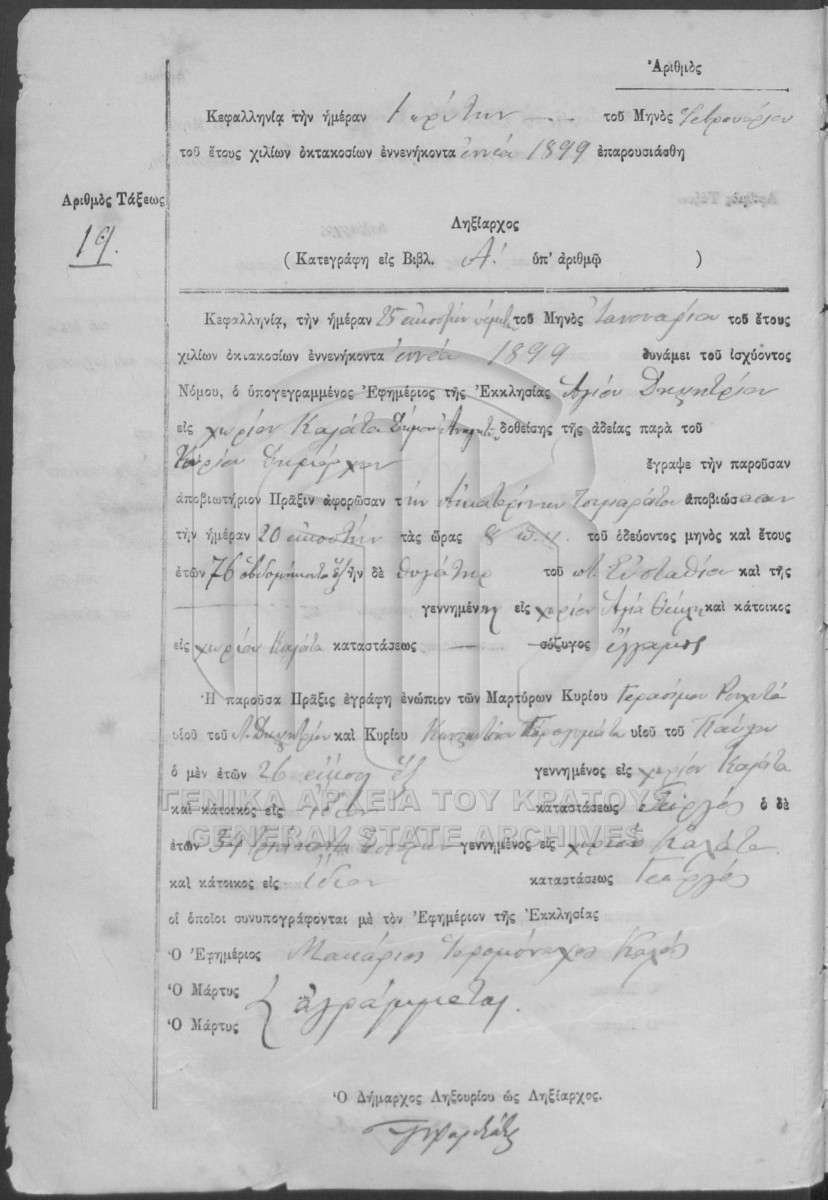 Ἀριθμὸς
Κεφαλληνίᾳ τὴν ἡμέραν 1 πρώτην τοῦ Μηνὸς Φεβρουάριου
τοῦ ἔτους χιλίων ὀκτακοσίων ἐννενήκοντα ἐννέα 1899 ἐπαρουσιάσθη
Ἀριθμὸς Τάξεως
19.
Ληξίαρχος
( Κατεγράφη εἰς Βιβλ. Α! ὑπ' ἀριθμῷ )
Κεφαλληνίᾳ, τὴν ἡμέραν 25 εἰκοστὴν πέμπτην τοῦ Μηνὸς Ἰανουαρίου τοῦ ἔτους
χιλίων ὀκτακοσίων ἐννενήκοντα ἐννέα 1899 δυνάμει τοῦ ἰσχύοντος
Νόμου, ὁ ὑπογεγραμμένος Ἐφημέριος τῆς Ἐκκλησίας Ἁγίου Δημητρίου
εἰς χωρίον Καλάτα Δήμου δοθείσης τῆς ἀδείας παρὰ τοῦ
Κυρίου Δημάρχου ἔγραψε τὴν παροῦσαν
ἀποβιωτήριον Πρᾶξιν ἀφορῶσαν τὴν Αἰκατερίνην ἀποβιώσασαν
τὴν ἡμέραν 20 εἰκοστὴν τὰς ὥρας 8 π.μ. τοῦ ὁδεύοντος μηνὸς καὶ ἔτους
ἐτῶν 76 ἑβδομήκοντα ἕξ ἦν δὲ θυγάτηρ τοῦ π. Εὐσταθίου καὶ τῆς
γεννημένη εἰς χωρίον Ἁγία Θέκλη καὶ κάτοικος
εἰς χωρίον Καλάτα καταστάσεως σύζυγος ἔγγαμος
Ἡ παροῦσα Πρᾶξις ἐγράφη ἐνώπιον τῶν Μαρτύρων Κυρίου Γερασίμου
υἱοῦ τοῦ Δημητρίου καὶ Κυρίου Κωνσταντίνου υἱοῦ τοῦ Παύλου
ὁ μὲν ἐτῶν 26 εἴκοσι ἕξ γεννημένος εἰς χωρίον Καλάτα
καὶ κάτοικος εἰς ἴδιον καταστάσεως Γεωργός ὁ δὲ
ἐτῶν 34 τριάκοντα τεσσάρων γεννημένος εἰς χωρίον Καλάτα
καὶ κάτοικος εἰς ἴδιον καταστάσεως Γεωργός
οἱ ὁποῖοι συνυπογράφονται μὲ τὸν Ἐφημέριον τῆς Ἐκκλησίας
Ὁ Ἐφημέριος Μακάριος Ἱερομόναχος
Ὁ Μάρτυς
ἀγράμματοι.
Ὁ Μάρτυς
Ὁ Δήμαρχος Ληξουρίου ὡς Ληξίαρχος.
ΓΕΝΙΚΑ ΑΡΧΕΙΑ ΤΟΥ ΚΡΑΤΟΥΣ
GENERAL STATE ARCHIVES